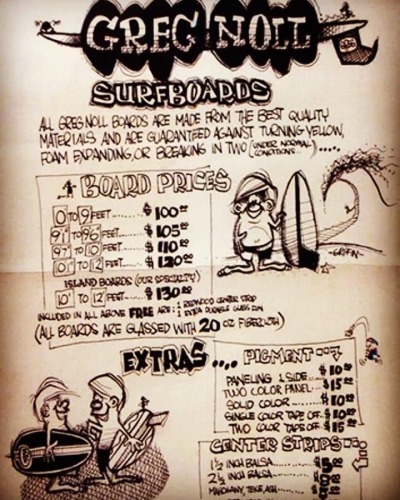 GREG NOLL
SURFBOARDS
ALL GREG NOLL BOARDS ARE MADE FROM THE BEST QUALITY
MATERIALS AND ARE GUARANTEED AGAINST TURNING YELLOW,
FOAM EXPANDING, OR BREAKING IN TWO (UNDER NORMAL
CONDITIONS).....
BOARD PRICES
0' TO 9 FEET..... $100.00
9'1" TO 9'6 FEET..... $105.00
9'7" TO 10 FEET.... $110.00
10'1" TO 12 FEET.... $120.00
ISLAND BOARDS (OUR SPECIALTY)
10' TO 12 FEET..... $130.00
INCLUDED IN ALL ABOVE FREE ARE: 1 REDWOOD CENTER STRIP
(ALL BOARDS ARE GLASSED WITH 20 OZ FIBER
-GRIFIN-
EXTRAS ....
PIGMENT
PANELING 1 SIDE... $10.00
TWO COLOR PANEL.. $15.00
SOLID COLOR ..... $10.00
SINGLE COLOR TAPE OFF. $10.00
TWO COLOR TAPE OFFS $15.00
CENTER STRIPS
1 1/2 INCH BALSA.... $5.00
2 1/2 INCH BALSA
MAHOGANY